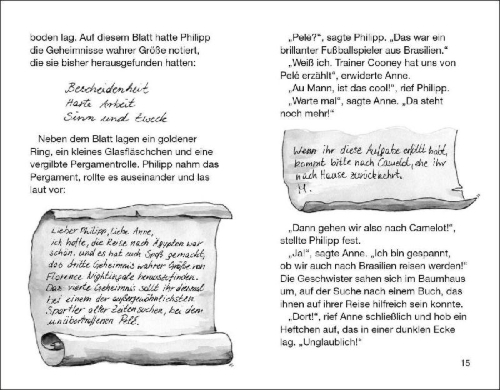 boden lag. Auf diesem Blatt hatte Philipp
die Geheimnisse wahrer Größe notiert,
die sie bisher herausgefunden hatten:
Bescheidenheit
Harte Arbeit
Sinn und Zweck
Neben dem Blatt lagen ein goldener
Ring, ein kleines Glasfläschchen und eine
vergilbte Pergamentrolle. Philipp nahm das
Pergament, rollte es auseinander und las
laut vor:
Lieber Philipp, liebe Anne,
ich hoffe, die Reise nach Ägypten war
schön, und es hat euch Spaß gemacht,
das dritte Geheimnis wahrer Größe von
Florence Nightingale herauszufinden.
Das vierte Geheimnis sollt ihr diesmal
bei einem der außergewöhnlichsten
Sportler aller Zeiten suchen, bei dem
unübertroffenen Pelé.
„Pelé?“, sagte Philipp. „Das war ein
brillanter Fußballspieler aus Brasilien.“
„Weiß ich. Trainer Cooney hat uns von
Pelé erzählt“, erwiderte Anne.
„Au Mann, ist das cool!“, rief Philipp.
„Warte mal“, sagte Anne. „Da steht
noch mehr!“
Wenn ihr diese Aufgabe erfüllt habt,
kommt bitte nach Camelot, ehe ihr
nach Hause zurückkehrt.
M.
„Dann gehen wir also nach Camelot!“,
stellte Philipp fest.
„Ja!“, sagte Anne. „Ich bin gespannt,
ob wir auch nach Brasilien reisen werden!“
Die Geschwister sahen sich im Baumhaus
um, auf der Suche nach einem Buch, das
ihnen auf ihrer Reise hilfreich sein konnte.
„Dort!“, rief Anne schließlich und hob ein
Heftchen auf, das in einer dunklen Ecke
lag. „Unglaublich!“
15